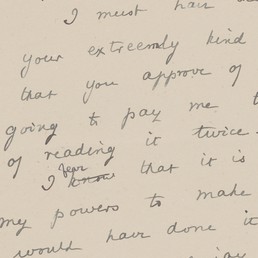 I must hav
your extreemly kind
that you approve of
going to pay me t
of reading it twice.
fear
I know that it is
my powers to make
would hav done it